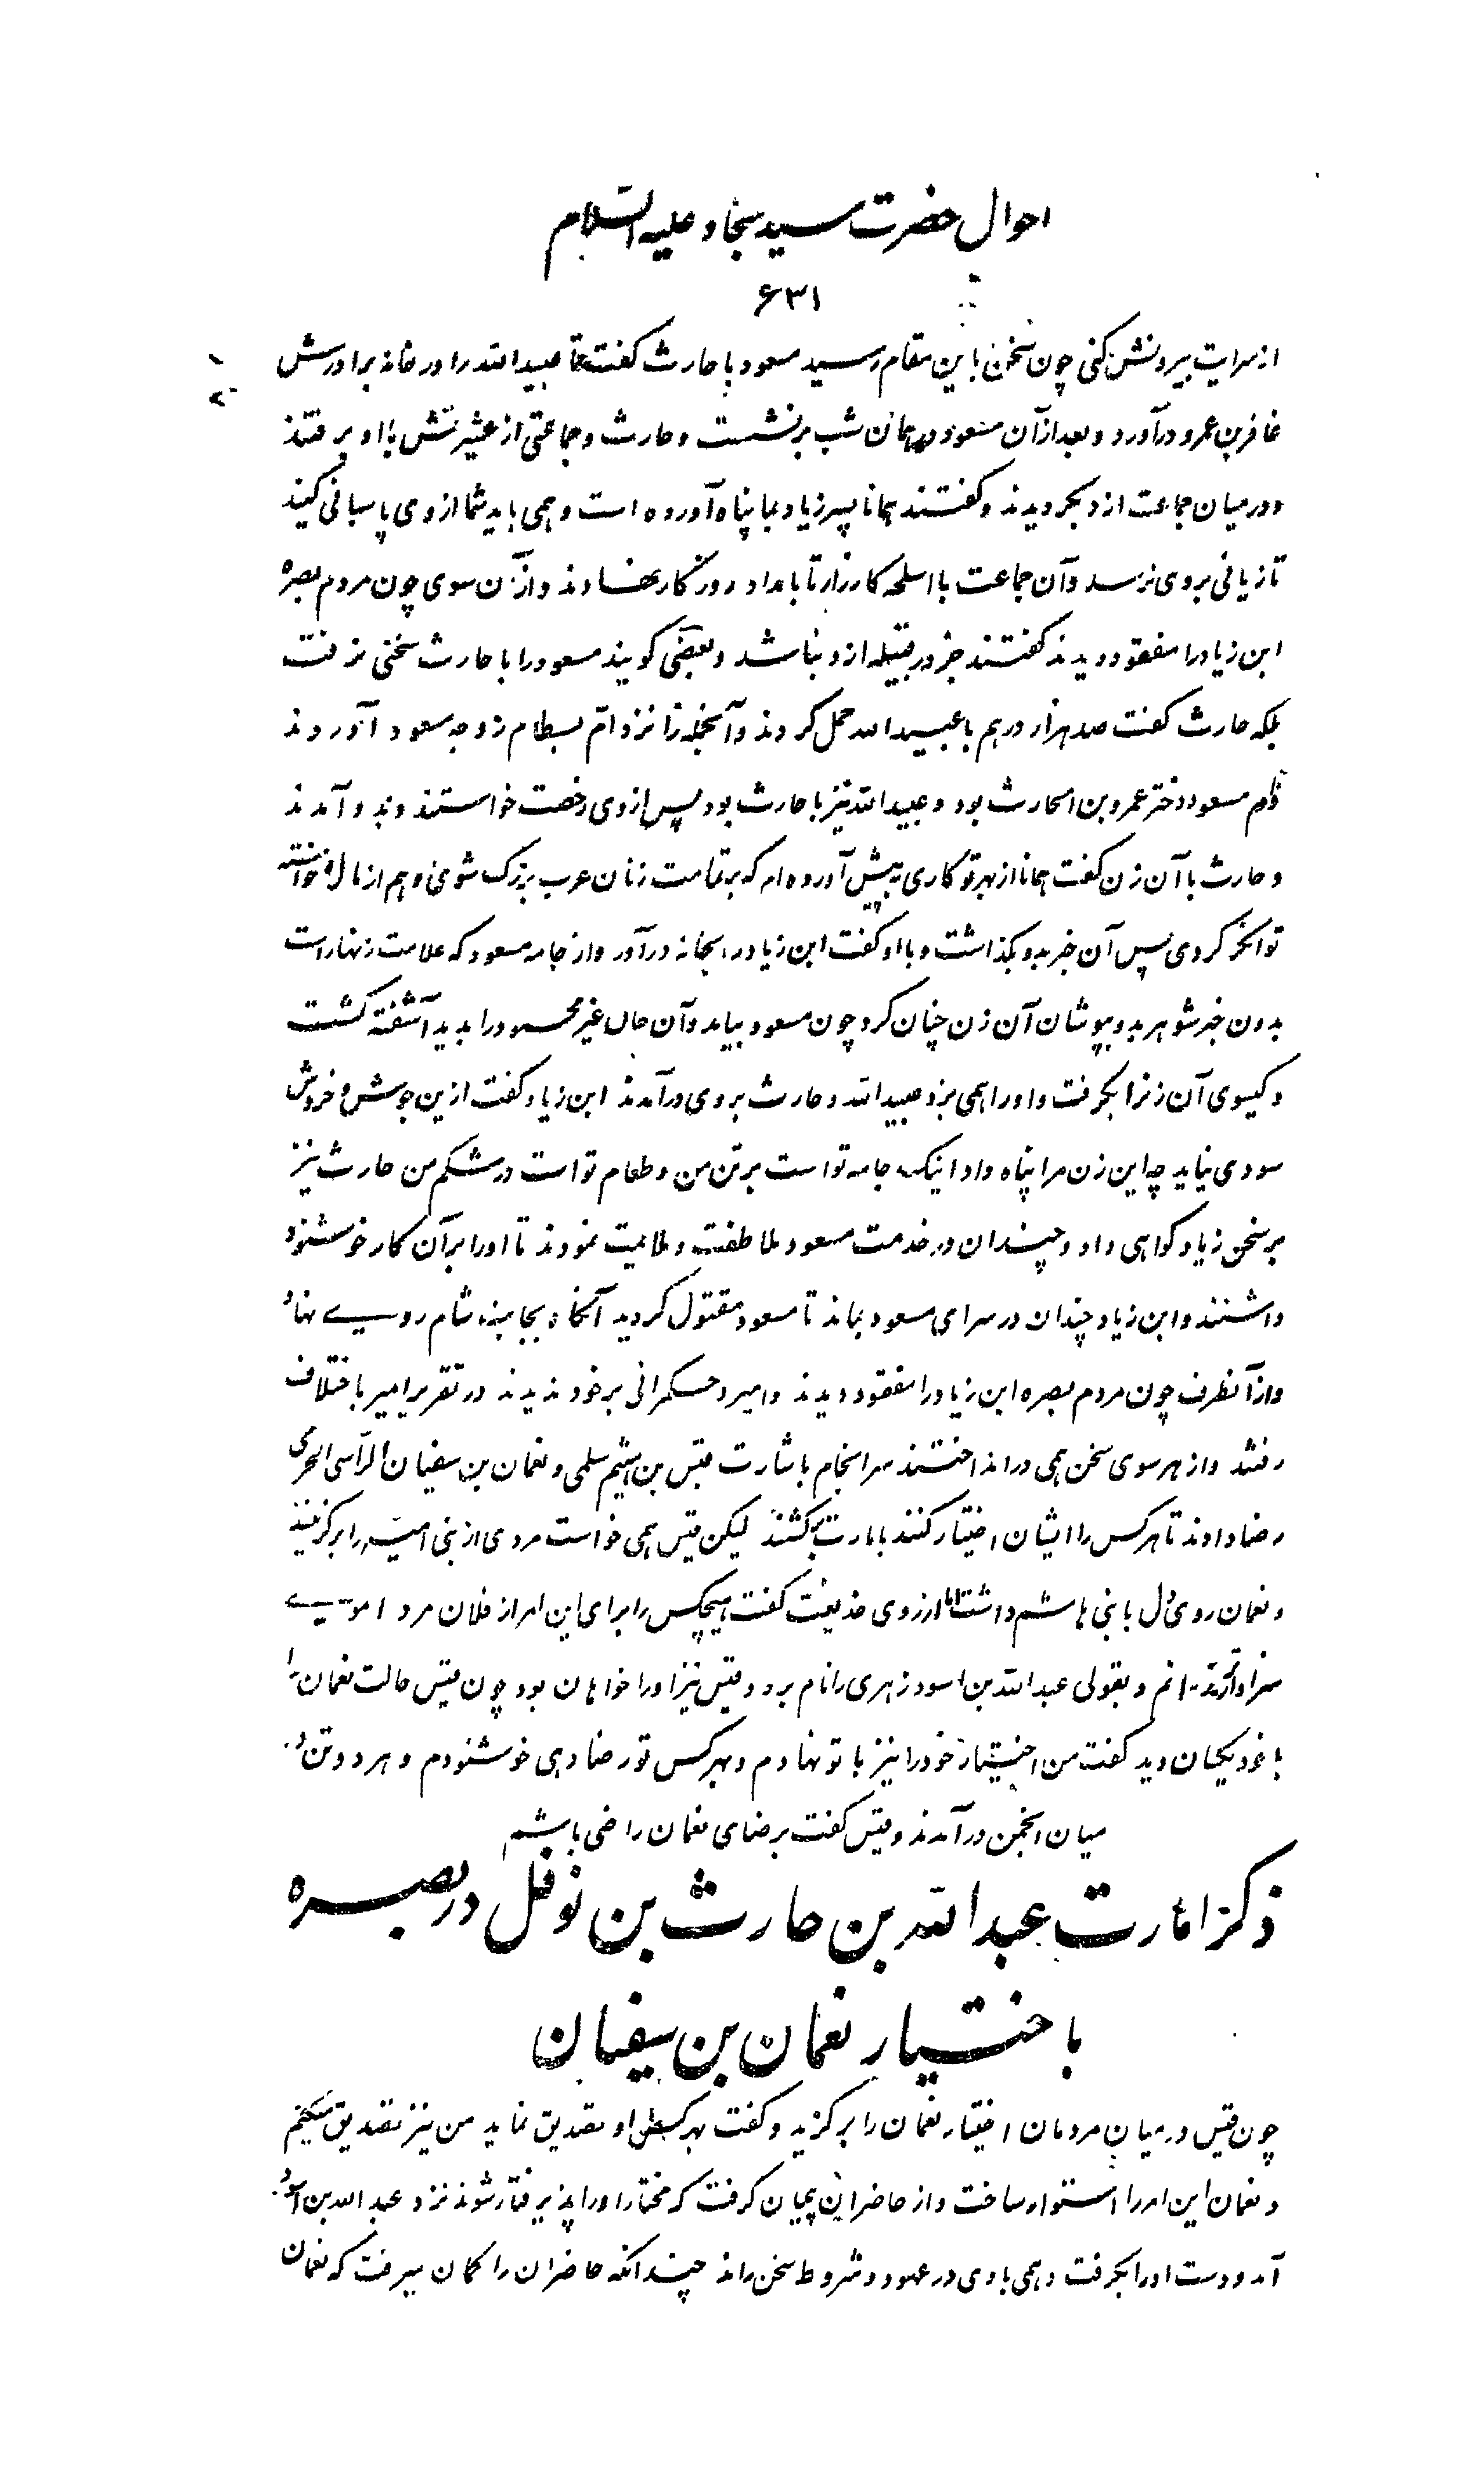 احوال حضرت سید سجاد علیه السلام
۶۳۱
از سرایت بیرونش کنی چون سخن باین مقام رسید مسعود با حارث گفت تا عبیدالله را در خانه برادرش
غافر بن عمرو درآورد و بعد از آن مسعود در همان شب برنشست و حارث و جماعتی از عشیرتش با او برفتند
و در میان جماعت ازد بگردیدند و گفتند همانا پسر زیاد بما پناه آورده است و همی باید شما از وی پاسبانی کنید
تا زیانی بروی نرسد و آن جماعت با اسلحه کارزار تا بامداد روزگار نهادند و از آن سوی چون مردم بصره
ابن زیاد را مفقود دیدند گفتند جز در قبیله ازد نباشد و بعضی گویند مسعود را با حارث سخنی نرفت
بلکه حارث گفت صد هزار درهم با عبیدالله حمل کردند و آنجمله را نزد ام بسطام زوجه مسعود آوردند
و ام مسعود دختر عمرو بن الحارث بود و عبیدالله نیز با حارث بود پس از وی رخصت خواستند و بدو آمدند
و حارث با آن زن گفت همانا از بهر تو کاری به پیش آورده ام که بر تمامت زنان عرب بزرگ شوی و هم از مال و خواسته
توانگر گردی پس آن خبر بدو بگذاشت و با او گفت ابن زیاد را بخانه درآور و از جامه مسعود که علامت زنهار است
بدون خبر شوهر بدو بپوشان آن زن چنان کرد چون مسعود بیامد و آن حال غیر محمود را بدید آشفته گشت
و گیسوی آن زنرا بگرفت و او را همی بزد عبیدالله و حارث بروی درآمدند ابن زیاد گفت ازین جوش و خروش
سودی نیاید چه این زن مرا پناه داد اینک جامه تو است بر تن من و طعام تو است در شکم من حارث نیز
بر سخن زیاد گواهی داد و چندان در خدمت مسعود ملاطفت و ملایمت نمودند تا او را بر آن کار خوشنود
داشتند و ابن زیاد چندان در سرای مسعود بماند تا مسعود مقتول گردید آنگاه بجانب شام روی نهاد
و از آنطرف چون مردم بصره ابن زیاد را مفقود دیدند و امیر و حکمرانی بر خود ندیدند در تقریر امیر باختلاف
رفتند و از هر سوی سخن همی درانداختند سرانجام باشارت قیس بن الهیثم سلمی و نعمان بن سفیان الراسبی الجرمی
رضا دادند تا هر کس را ایشان اختیار کنند بامارت برکشند لیکن قیس همی خواست مردی از بنی امیه را برگزیند
و نعمان روی دل با بنی هاشم داشت اما از روی خدیعت گفت هیچکس را برای این امر از فلان مرد اموی
سزاوارتر ندانم و بقولی عبدالله بن اسود زهری را نام برد و قیس نیز او را خواهان بود چون قیس حالت نعمان را
با خود یکجان دید گفت من اختیار خود را نیز با تو نهادم و بهر کس تو رضا دهی خوشنودم و هر دو تن در
میان انجمن درآمدند و قیس گفت برضای نعمان راضی باشم
ذکر امارت عبدالله بن حارث بن نوفل در بصره
باختیار نعمان بن سفیان
چون قیس در میان مردمان اختیار نعمان را برگزید و گفت بهر کسی او تصدیق نماید من نیز تصدیق میکنم
و نعمان این امر را استوار ساخت و از حاضران پیمان گرفت که مختار او را پذیرفتار شوند نزد عبدالله بن اسود
آمد و دست او را بگرفت و همی با وی در عهود و شروط سخن راند چندانکه حاضران را گمان میرفت که نعمان